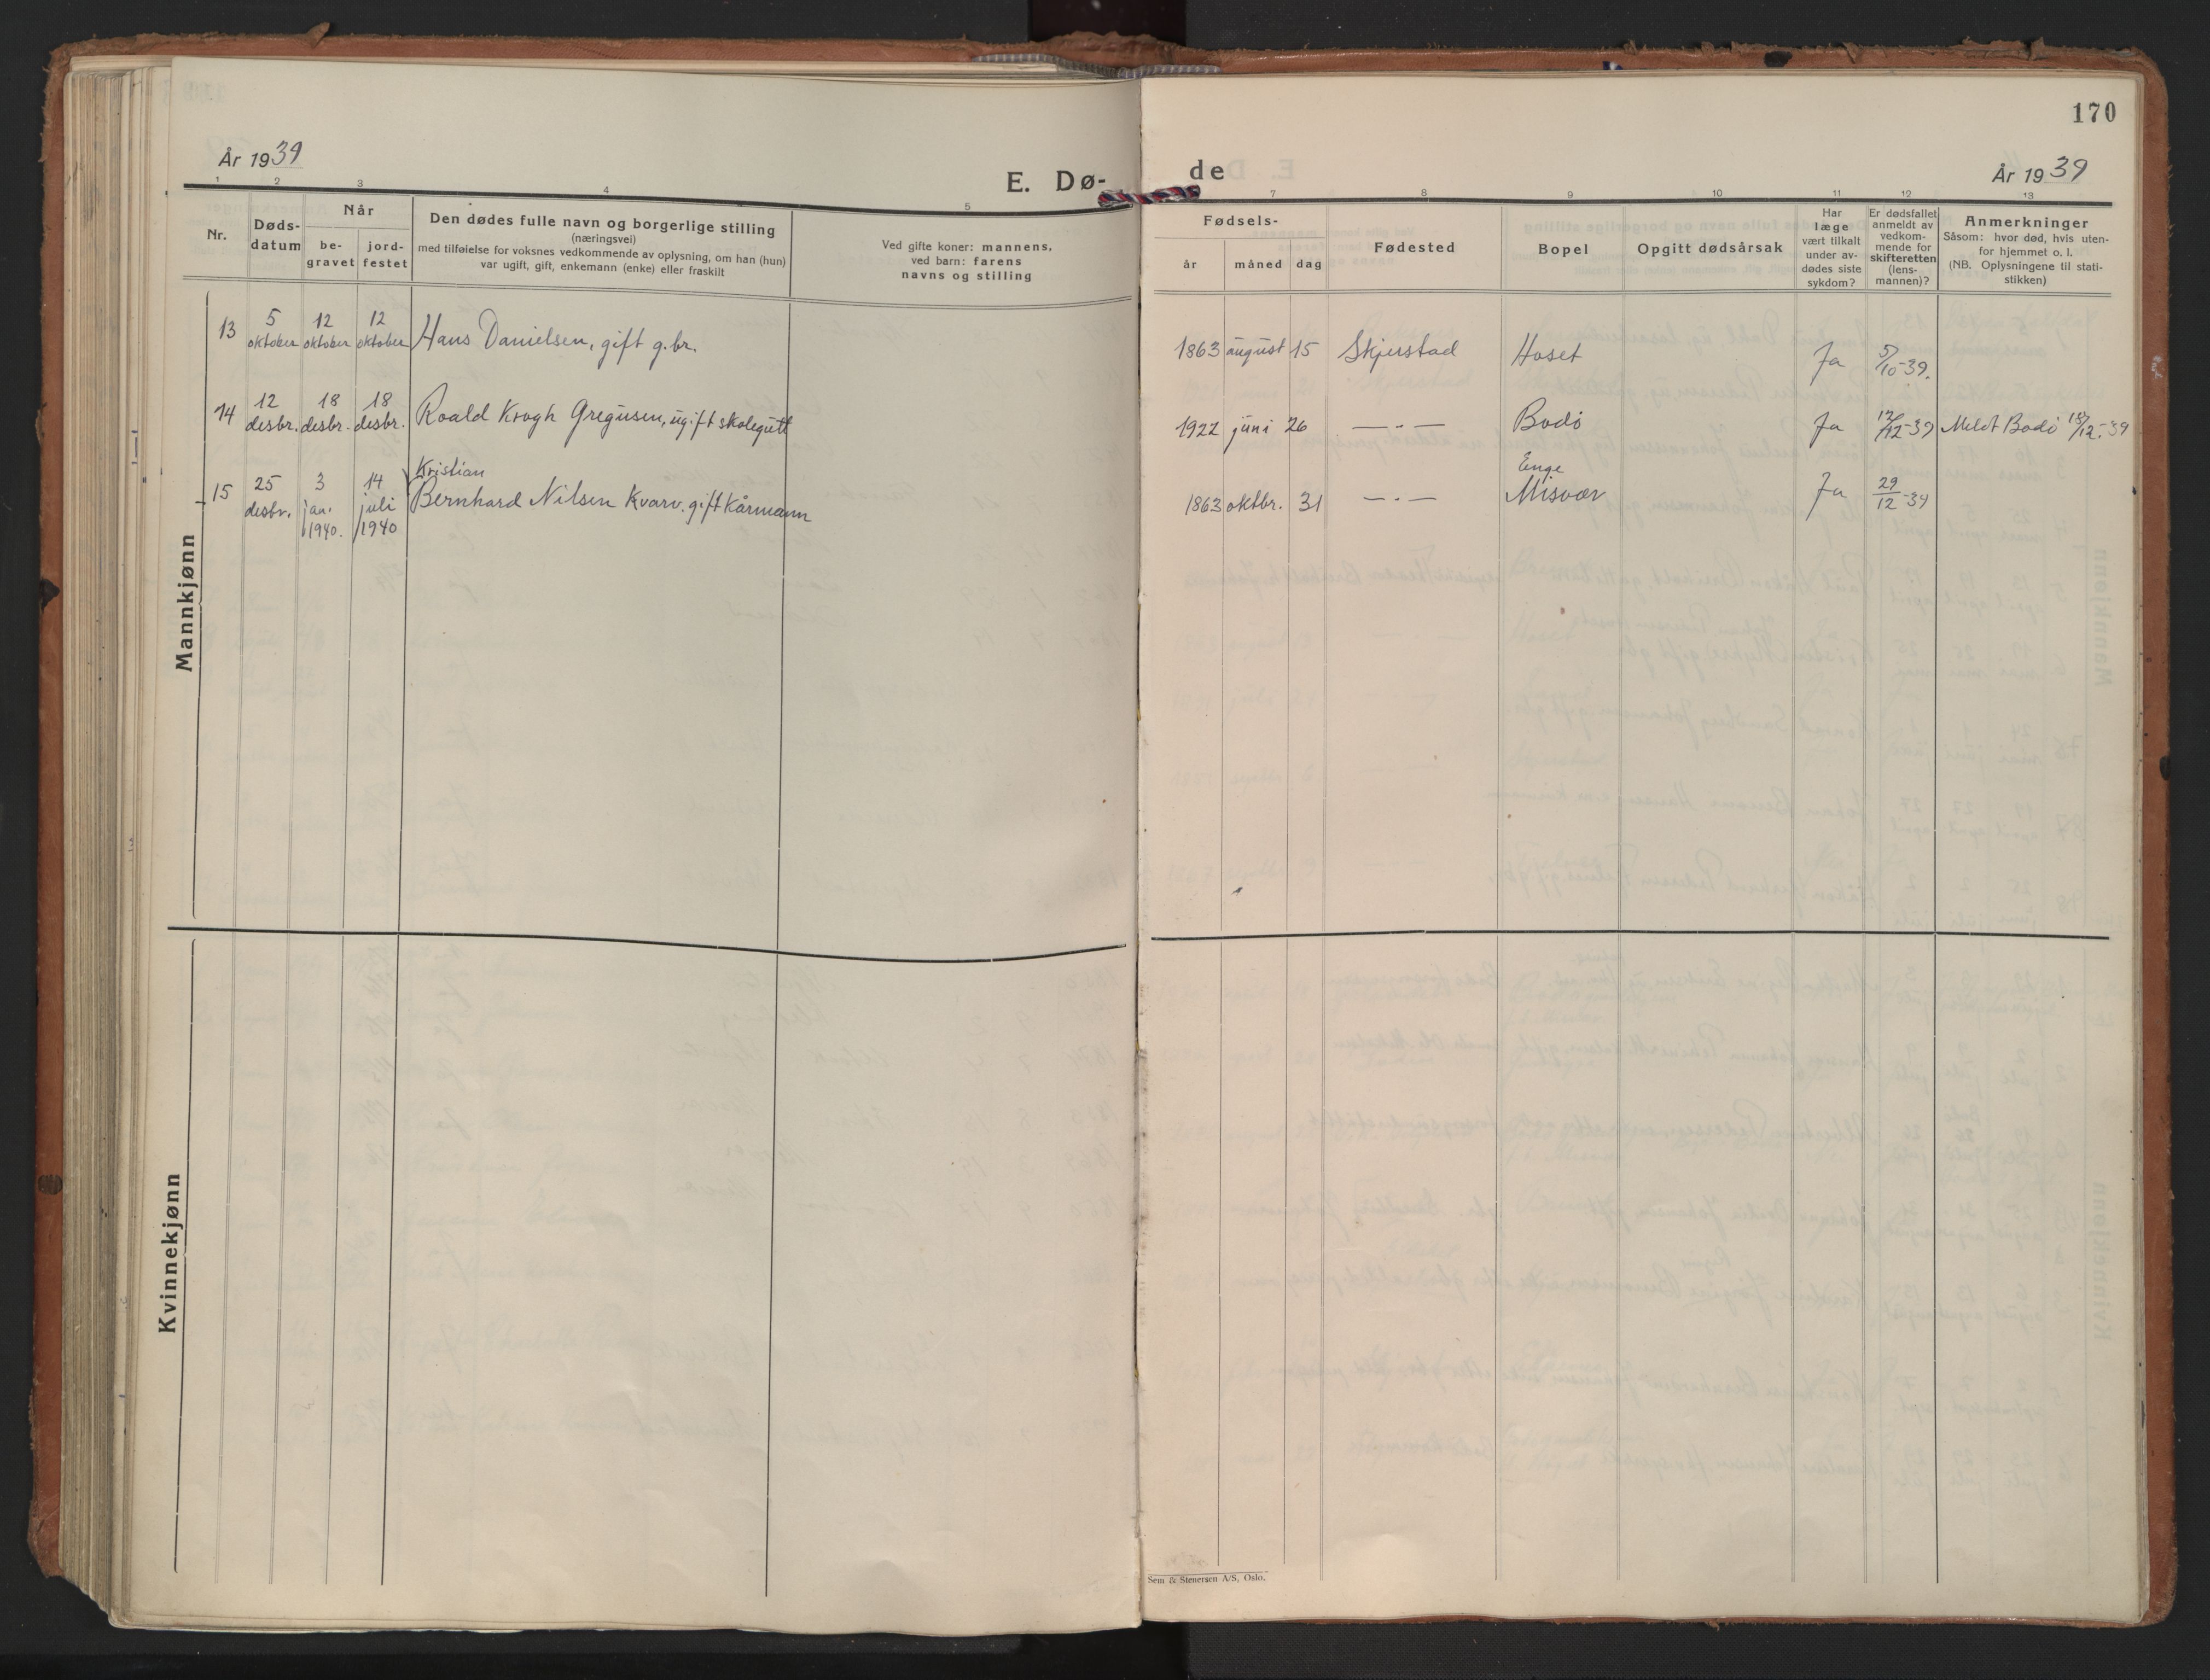 170
År 1939
E. Dø-
de
År 1939
1 2 3 4 5
7 8 9 10 11 12 13
Nr.
Døds-
datum
Når
be-
gravet
jord-
festet
Den dødes fulle navn og borgerlige stilling
(næringsvei)
med tilføielse for voksnes vedkommende av oplysning, om han (hun)
var ugift, gift, enkemann (enke) eller fraskilt
Ved gifte koner: mannens,
ved barn: farens
navns og stilling
Fødsels-
år måned dag
Fødested
Bopel
Opgitt dødsårsak
Har
læge
vært tilkalt
under av-
dødes siste
sykdom?
Er dødsfallet
anmeldt av
vedkom-
mende for
skifteretten
(lens-
mannen)?
Anmerkninger
Såsom: hvor død, hvis uten-
for hjemmet o. l.
(NB. Oplysningene til stati-
stikken)
Mannkjønn
13 5 oktober 12 oktober 12 oktober Hans Danielsen, gift g.br. 1863 august 15 Skjerstad Hoset Ja 5/10-39.
14 12 desbr. 18 desbr. 18 desbr. Roald Krogh Gregusen, ugift skolegutt 1922 juni 26 —·— Bodø Ja 12/12-39 Meldt Bodø 18/12-39
Kristian
Enge
15 25 desbr. 3 jan. 1940. 14 juli 1940 Bernhard Nilsen Kvarv. gift kårmann 1863 oktbr. 31 —·— Misvær Ja 29/12-39
Kvinnekjønn
Sem & Stenersen A/S, Oslo.